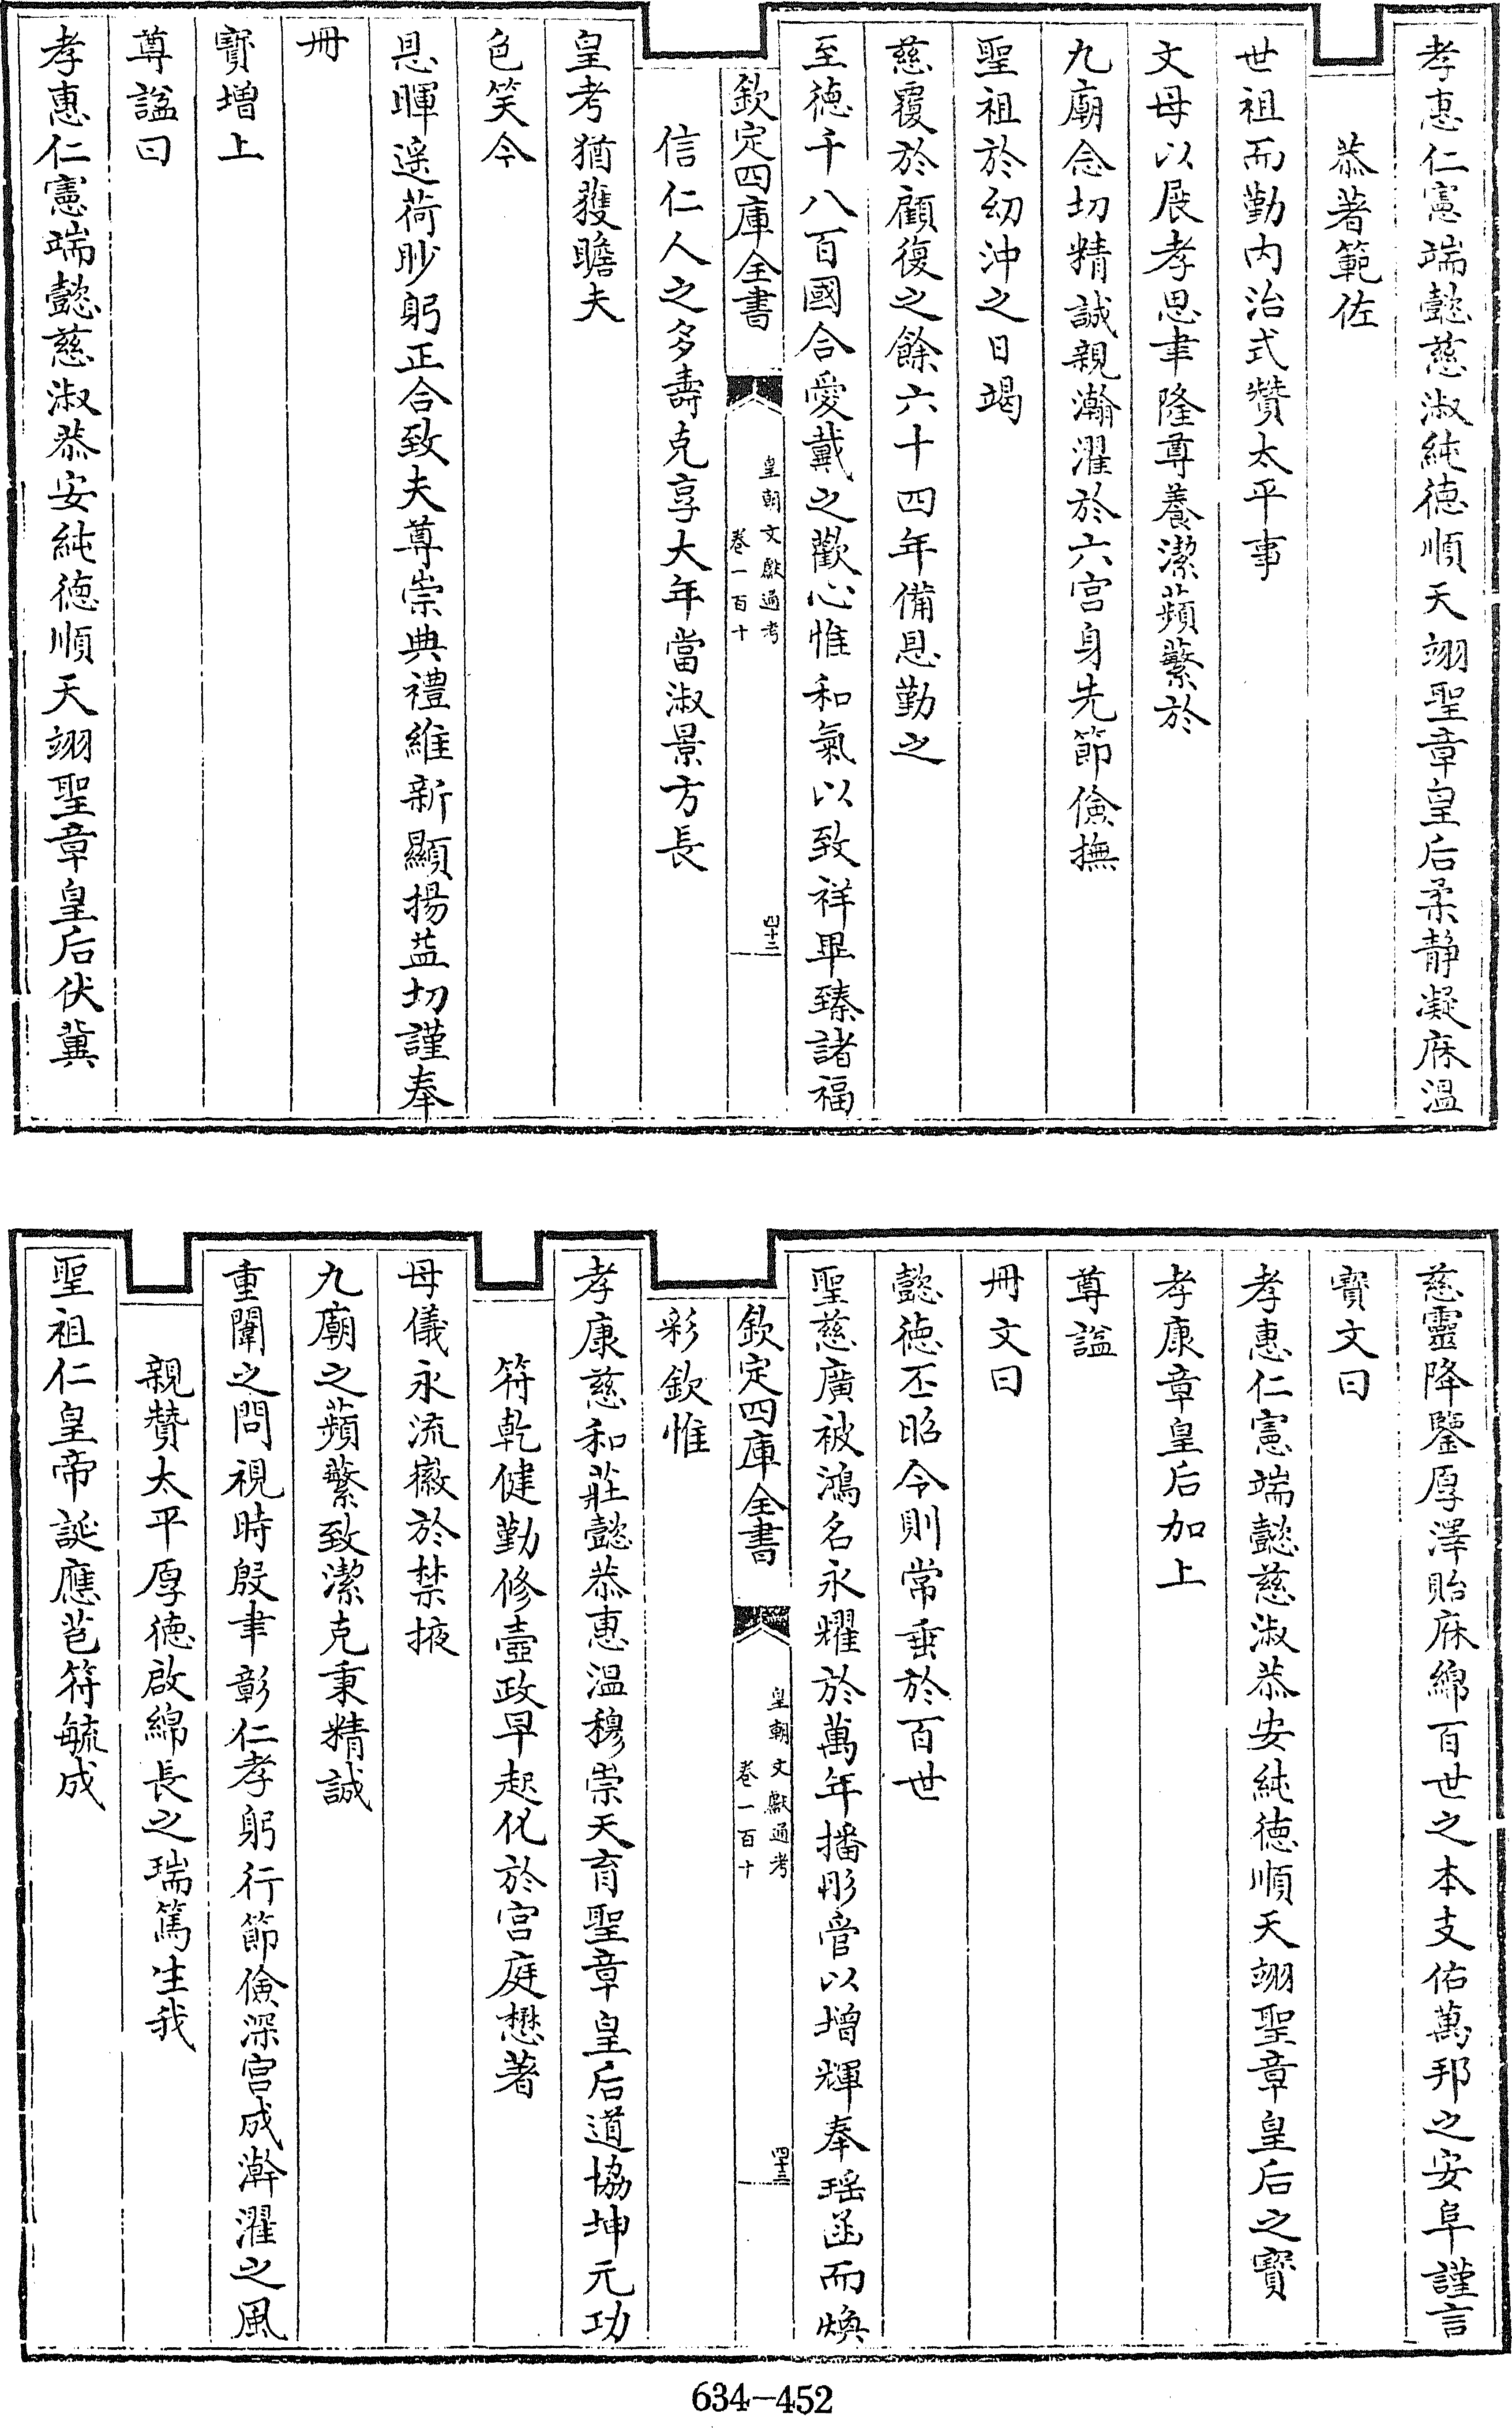 孝惠仁憲端懿慈淑純徳順天翊聖章皇后柔静凝庥溫
恭著範佐
世祖而勤内治式贊太平事
文母以展孝思聿隆尊養潔蘋蘩於
九廟念切精誠親瀚濯於六宫身先節儉撫
聖祖於㓜沖之日竭
慈覆於顧復之餘六十四年備恩勤之
至徳千八百國合愛戴之歡心惟和氣以致祥畢臻諸福
欽定四庫全書
皇朝文獻通考
卷一百十
四十二
信仁人之多壽克享大年當淑景方長
皇考猶獲瞻夫
色笑今
恩暉遥荷眇躬正合致夫尊崇典禮維新顯揚益切謹奉
冊
寳增上
尊諡曰
孝惠仁憲端懿慈淑恭安純徳順天翊聖章皇后伏冀
慈靈降鑒厚澤貽庥綿百世之本支佑萬邦之安阜謹言
寳文曰
孝惠仁憲端懿慈淑恭安純徳順天翊聖章皇后之寳
孝康章皇后加上
尊諡
冊文曰
懿徳丕昭令則常垂於百世
聖慈廣被鴻名永耀於萬年播彤管以增輝奉瑶函而煥
欽定四庫全書
皇朝文獻通考
卷一百十
四十三
彩欽惟
孝康慈和莊懿恭惠温穆崇天育聖章皇后道協坤元功
符乾健勤修壼政早起化於宫庭懋著
母儀永流徽於禁掖
九廟之蘋蘩致潔克秉精誠
重闈之問視時殷聿彰仁孝躬行節儉深宫成澣濯之風
親贊太平厚徳啟綿長之瑞篤生我
聖祖仁皇帝誕應苞符毓成
634-452